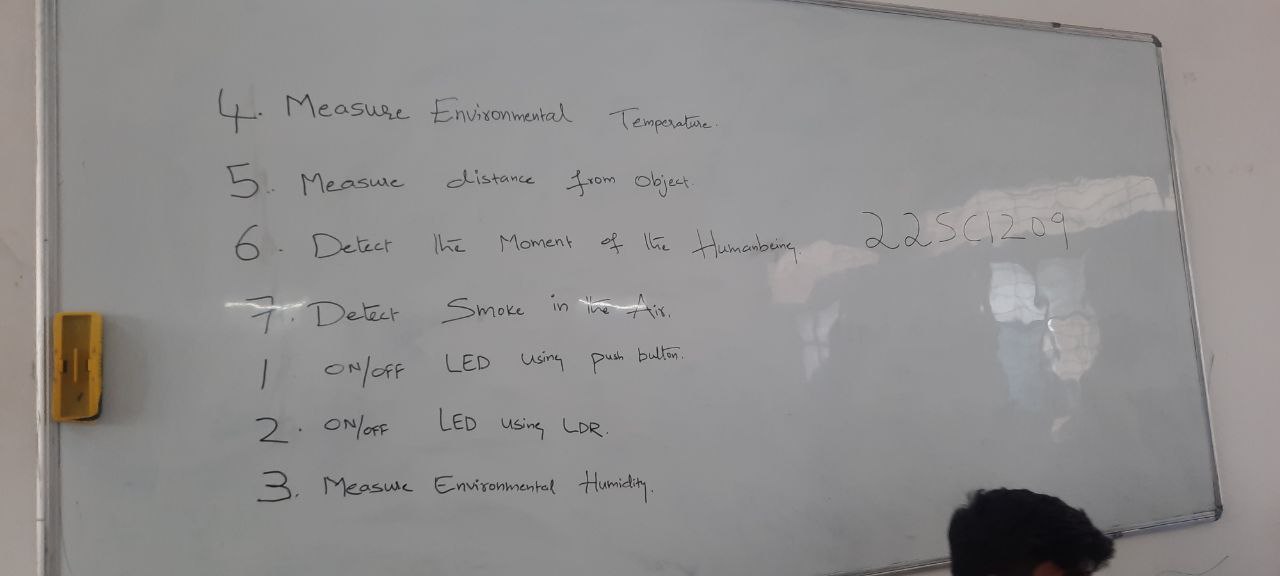 4. Measure Environmental Temperature.
5. Measure distance from Object.
6. Detect the Moment of the Humanbeing. 22SC1209
7. Detect Smoke in the Air.
1 ON/OFF LED using push button.
2. ON/OFF LED using LDR.
3. Measure Environmental Humidity.